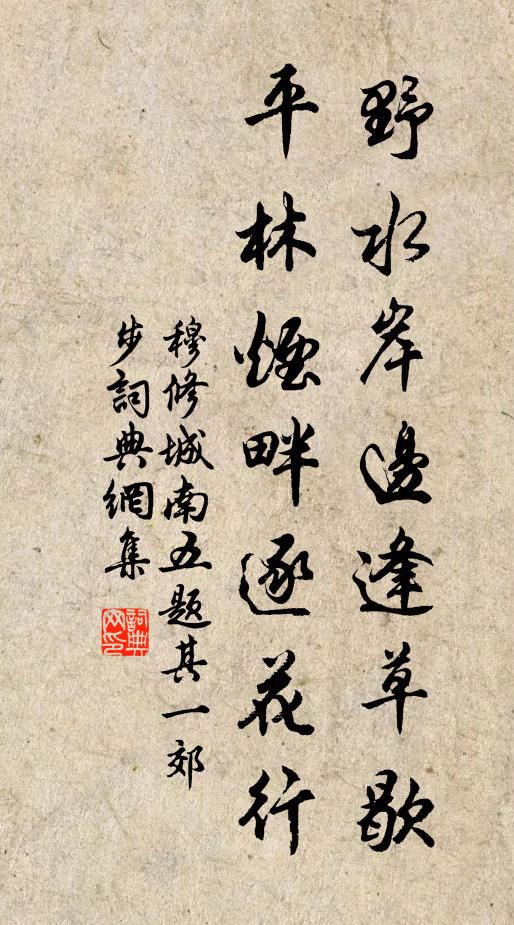 野水岸邊逢草歇
平林煙畔逐花行
穆修城南五題其一郊
步詞典網集
詞典
网印